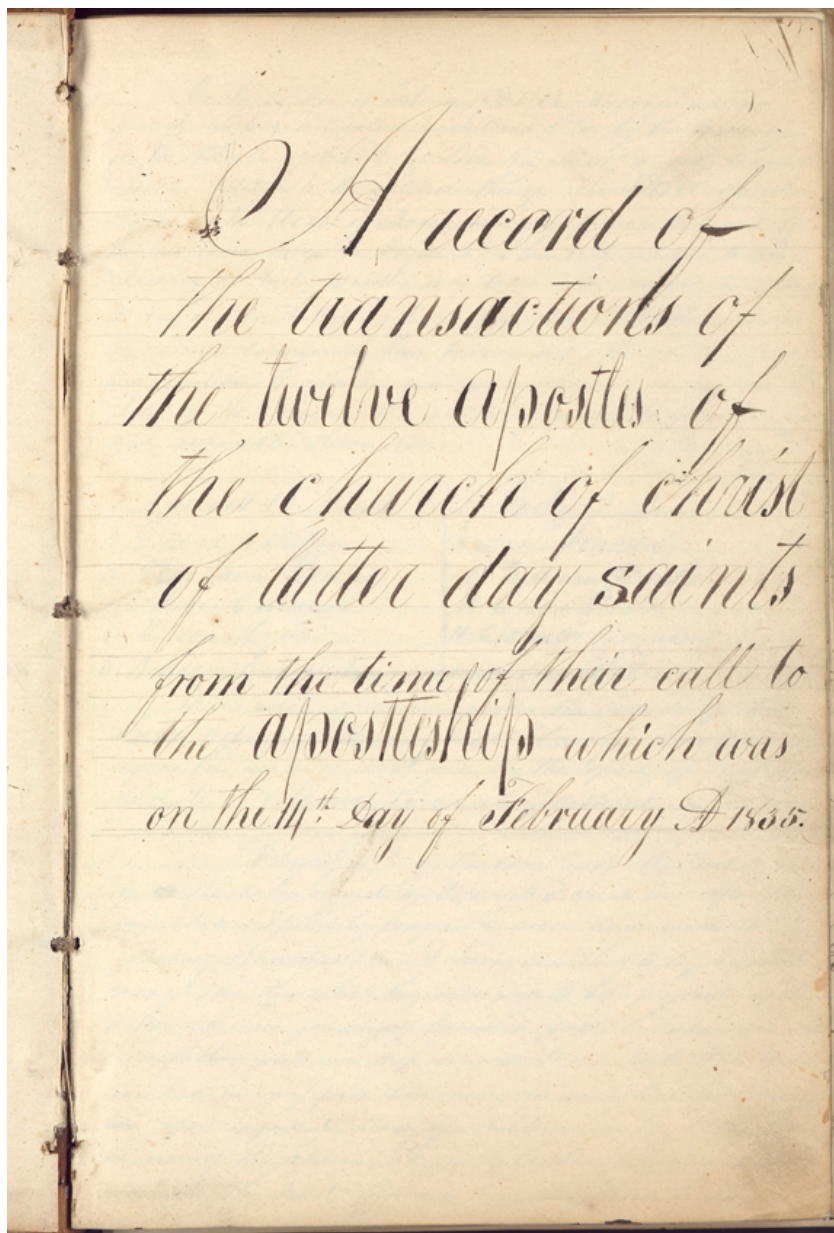 A record of
the transactions of
the twelve apostles of
the church of christ
of latter day saints
from the time of their call to
the apostleship which was
on the 14th Day of February AD 1835.